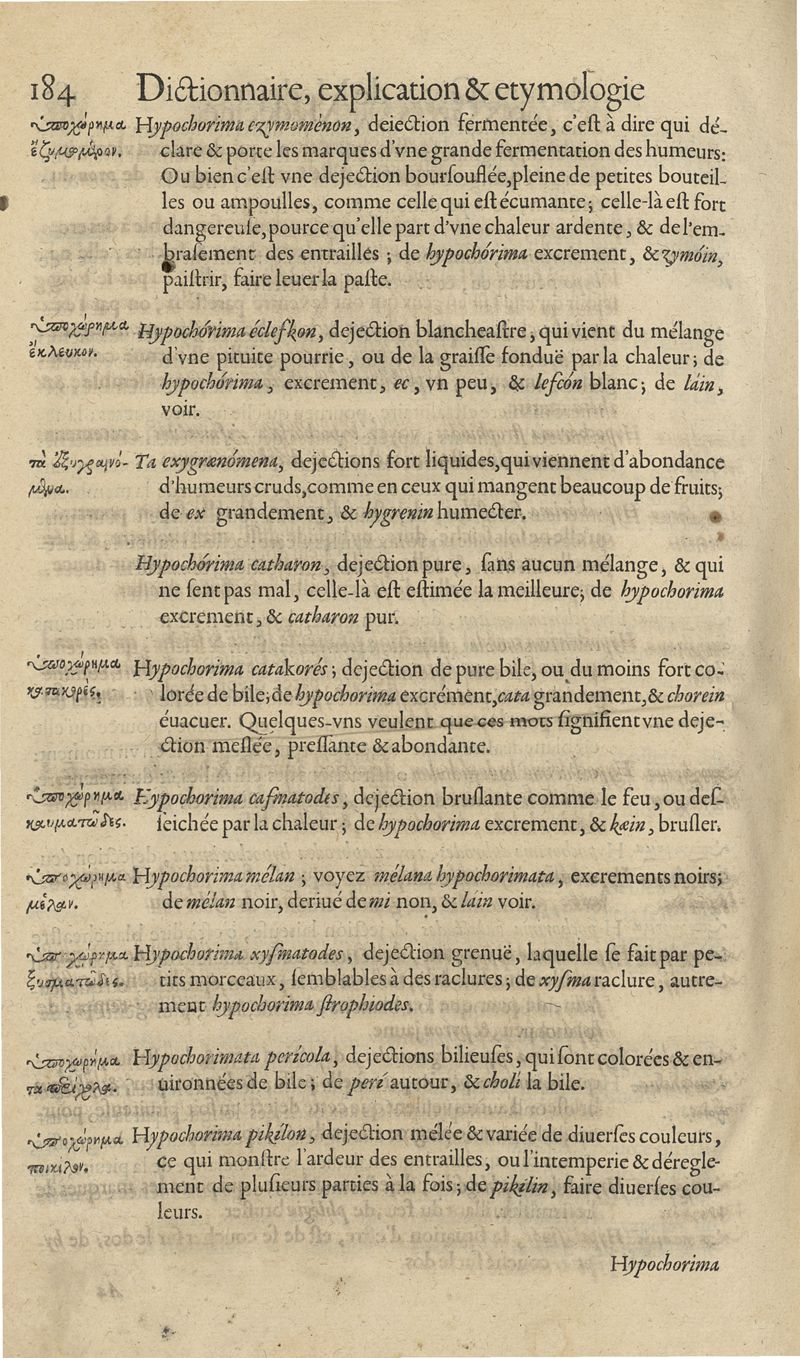 184 Dictionnaire, explication & etymologie
ὑποχώρημα Hypochorima ezymomènon, deiection fermentée, c'eſt à dire qui dé-
ἐζυμωμένον. clare & porte les marques d'vne grande fermentation des humeurs:
Ou bien c'eſt vne dejection bourſouflée, pleine de petites bouteil-
les ou ampoulles, comme celle qui eſt écumante; celle-là eſt fort
dangereuſe, pource qu'elle part d'vne chaleur ardente, & de l'em-
braſement des entrailles ; de hypochórima excrement, & zymóin,
paiſtrir, faire leuer la paſte.
ὑποχώρημα Hypochórima éclefkon, dejection blancheaſtre, qui vient du mélange
ἔκλευκον. d'vne pituite pourrie, ou de la graiſſe fonduë par la chaleur; de
hypochórima, excrement, ec, vn peu, & lefcón blanc; de láin,
voir.
τὰ ἐξυγραινό- Ta exygrænómena, dejections fort liquides, qui viennent d'abondance
μενα. d'humeurs cruds, comme en ceux qui mangent beaucoup de fruits;
de ex grandement, & hygrenin humecter.
Hypochórima catharon, dejection pure, ſans aucun mélange, & qui
ne ſent pas mal, celle-là eſt eſtimée la meilleure; de hypochorima
excrement, & catharon pur.
ὑποχώρημα Hypochorima catakorés; dejection de pure bile, ou du moins fort co-
κατακορές. lorée de bile; de hypochorima excrément, cata grandement, & chorein
éuacuer. Quelques-vns veulent que ces mots ſignifient vne deje-
ction meſlée, preſſante & abondante.
ὑποχώρημα Hypochorima cafmatodes, dejection bruſlante comme le feu, ou deſ-
καυματῶδες. ſeichée par la chaleur ; de hypochorima excrement, & kæin, bruſler.
ὑποχώρημα Hypochorima mélan ; voyez mélana hypochorimata, excrements noirs;
μέλαν. de mélan noir, deriué de mi non, & lain voir.
ὑποχώρημα Hypochorima xyſmatodes, dejection grenuë, laquelle ſe fait par pe-
ξυσματῶδες. tits morceaux, ſemblables à des raclures; de xyſma raclure, autre-
ment hypochorima ſtrophiodes.
ὑποχωρήμα Hypochorimata perícola, dejections bilieuſes, qui ſont colorées & en-
τα περίχολα. uironnées de bile; de perí autour, & cholí la bile.
ὑποχώρημα Hypochorima pikílon, dejection mélée & variée de diuerſes couleurs,
ποικίλον. ce qui monſtre l'ardeur des entrailles, ou l'intemperie & déregle-
ment de pluſieurs parties à la fois; de pikilin, faire diuerſes cou-
leurs.
Hypochorima